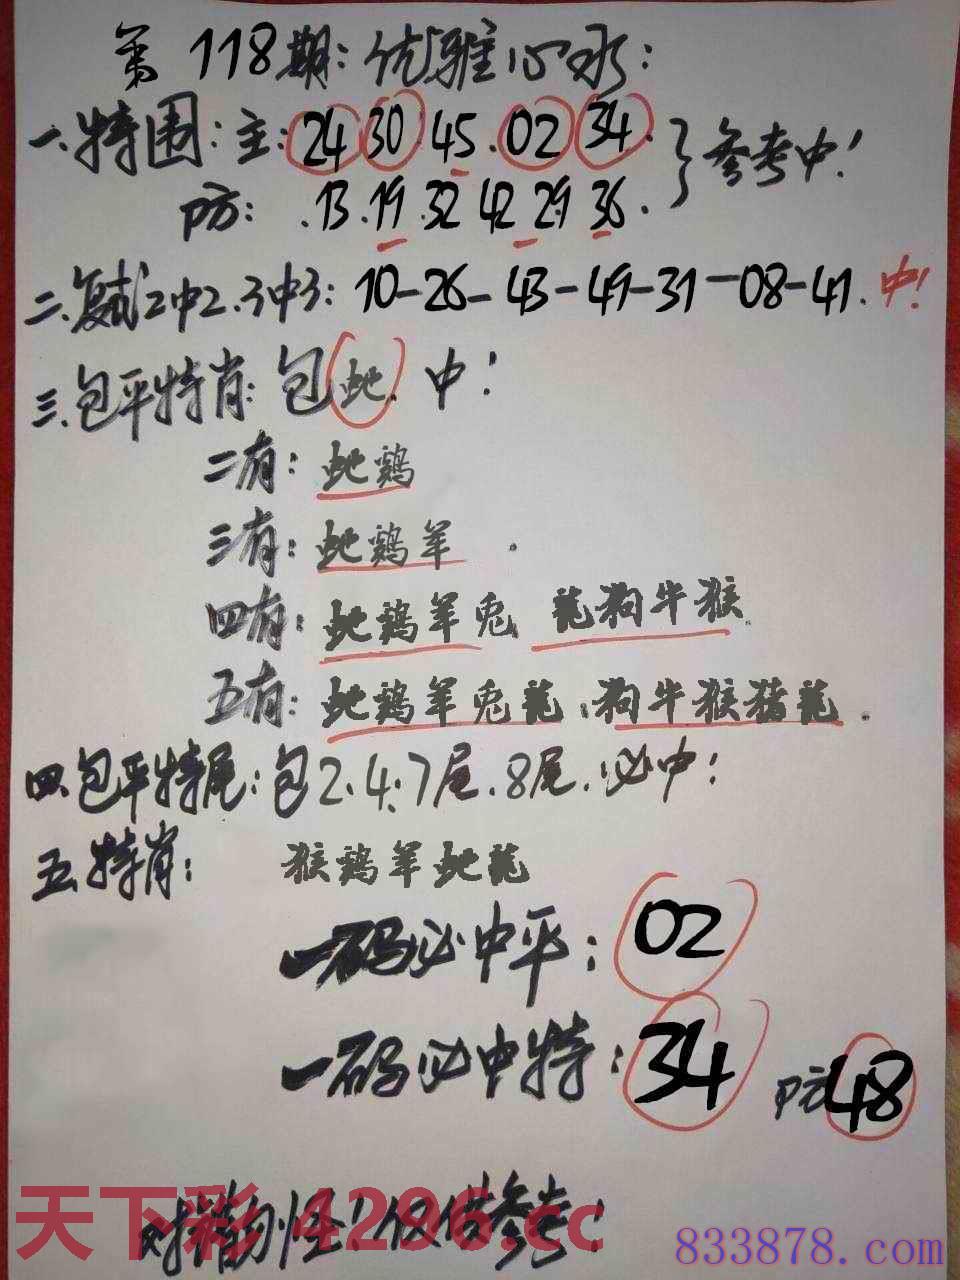 第118期:优雅心水:
一.特围:主:24 30 45.02 34.}参考中!
防:.13.19.32 42 29 36.
二.复试2中2.3中3:10-26-43-49-31-08-41.中!
三.包平特肖:包蛇.中!
二有:蛇鸡
三有:蛇鸡羊.
四有:蛇鸡羊兔 龍狗牛猴.
五有:蛇鸡羊兔龍.狗牛猴猪龍.
四.包平特尾:包2.4.7尾.8尾.必中!
五.特肖:猴鸡羊蛇龍
一码必中平:02
一码必中特:34 防48
对 错勿怪!仅供参考!
天下彩4296.cc
833878.com